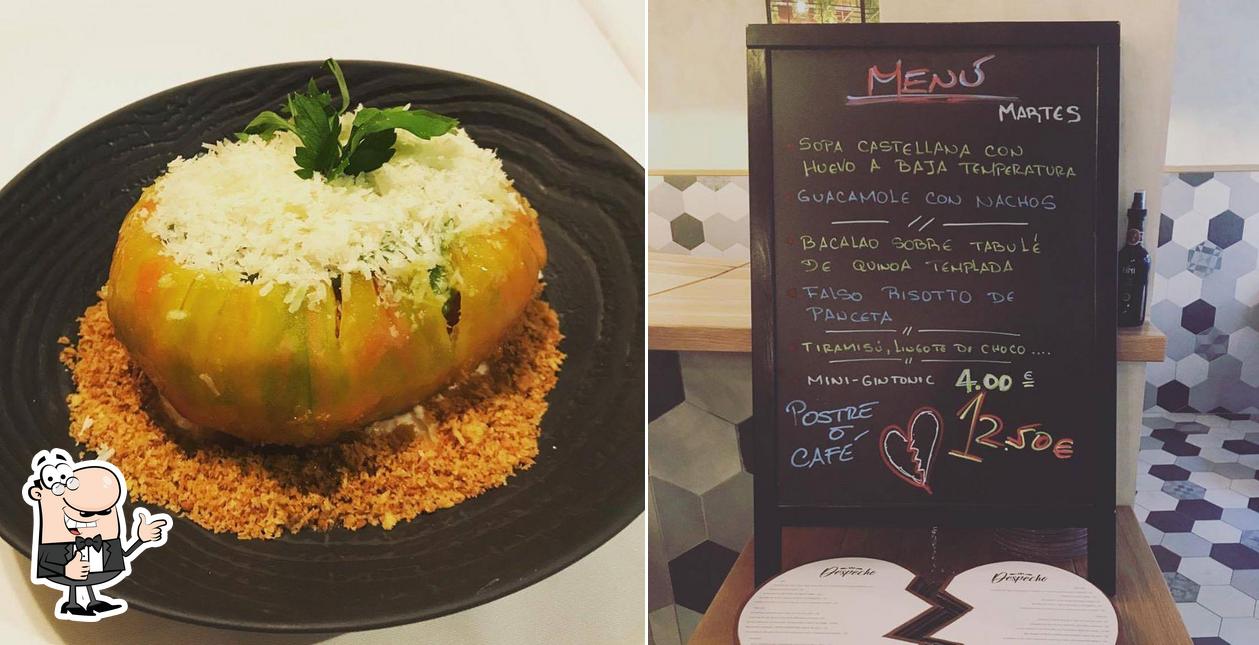 MENÚ
MARTES
SOPA CASTELLANA CON
HUEVO A BAJA TEMPERATURA
GUACAMOLE CON NACHOS
BACALAO SOBRE TABULÉ
DE QUINOA TEMPLADA
FALSO RISOTTO DE
PANCETA
TIRAMISÚ, LINGOTE DE CHOCO....
MINI-GINTONIC 4.00 €
POSTRE
Ó
CAFÉ
12.50€
Despecho
Despecho